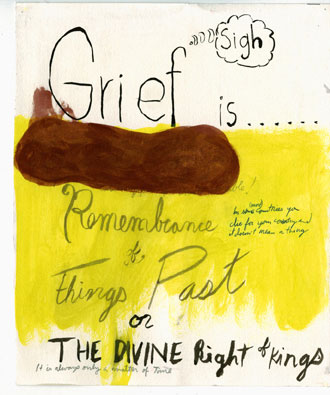 Sigh
Grief is......
Remembrance
of
Things Past
(and)
in some countries you
die for your country and
it doesn't mean a thing
or
THE DIVINE Right of Kings
It is always only a matter of Time